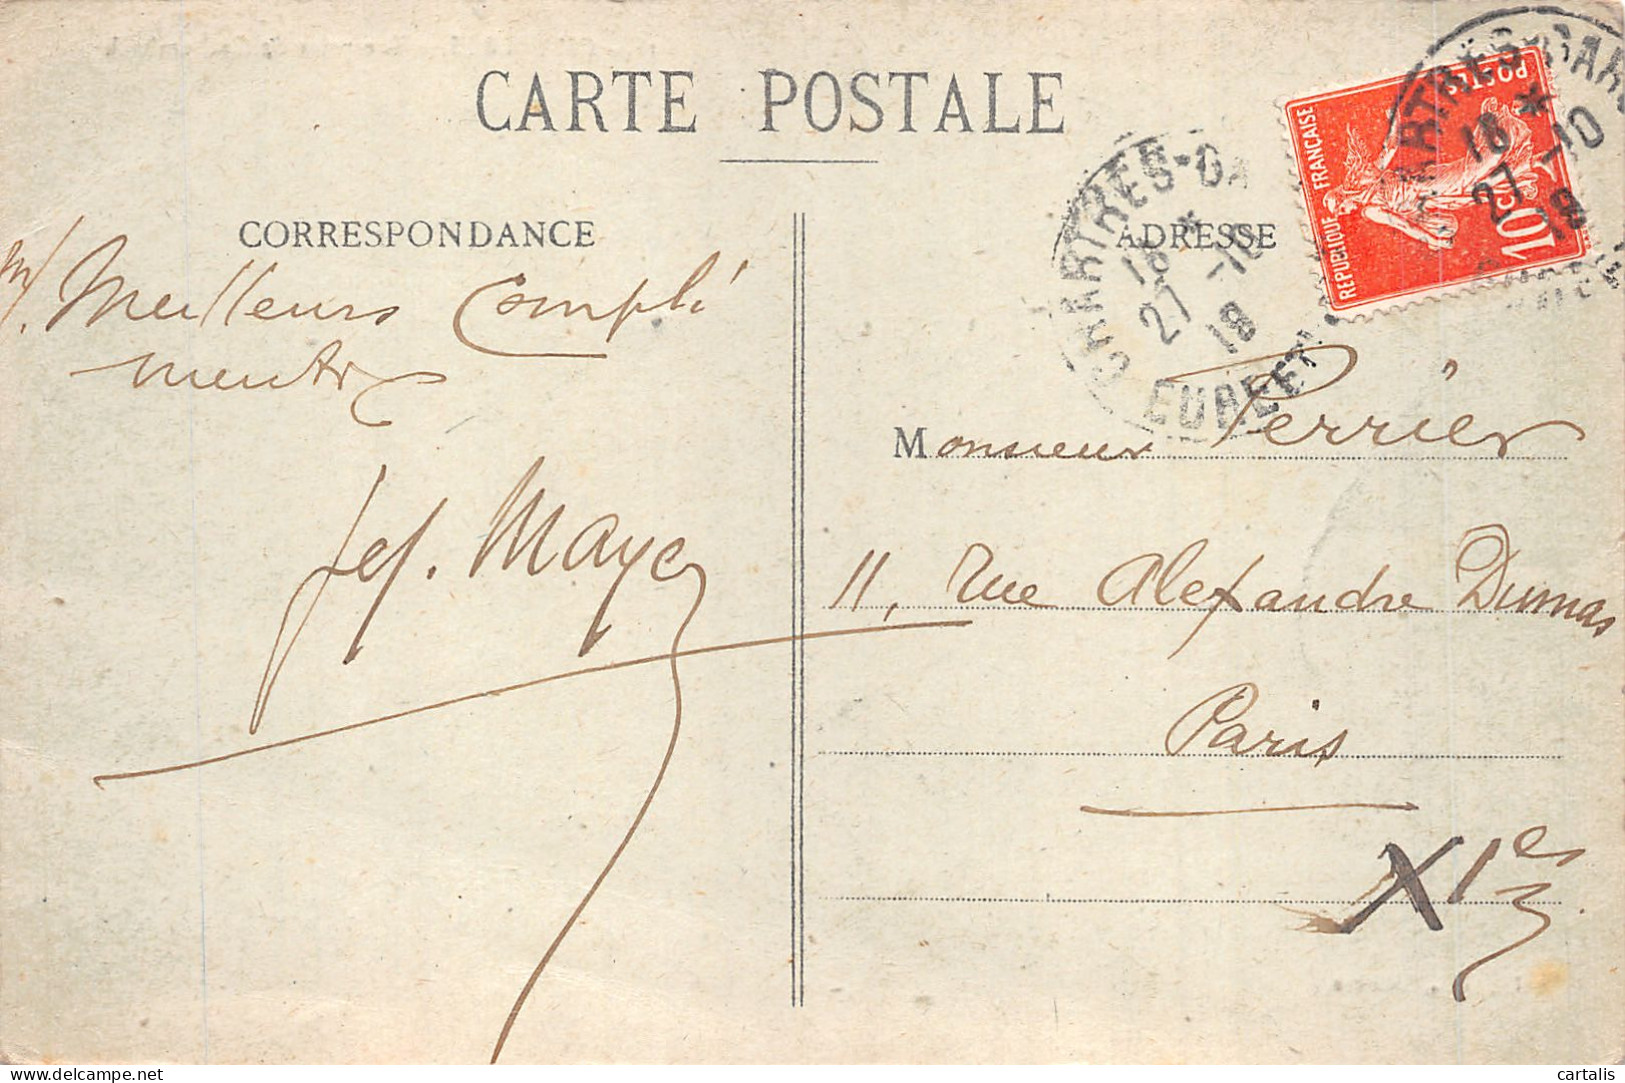 CARTE POSTALE
CORRESPONDANCE
Meilleurs Compli
ments
Jos. Mayer
ADRESSE
Monsieur Perrier
11, rue Alexandre Dumas
Paris
XIe
REPUBLIQUE FRANÇAISE
POSTES
10c
CHARTRES-GARE
18 *
27 -10
18
EURE ET
CHARTRES-GARE
18 *
27 -10
18
delcampe.net
cartalis